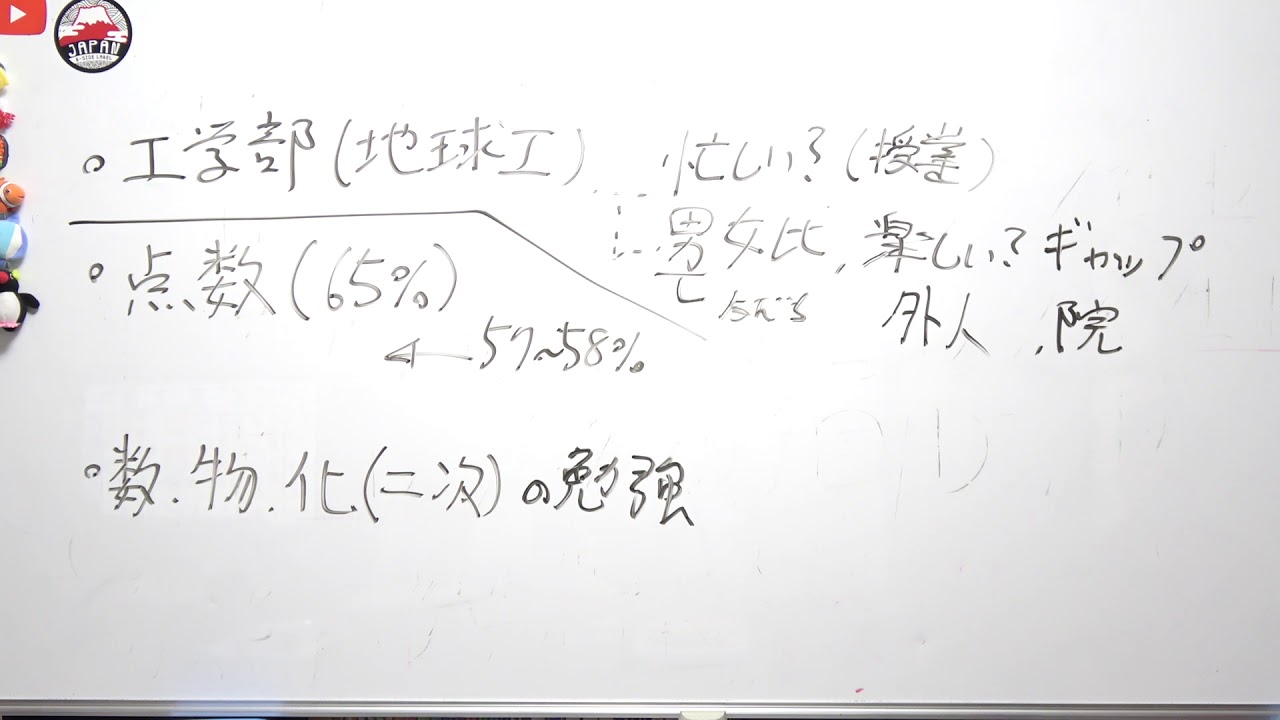 JAPAN
B-SIDE LABEL
・工学部(地球工) 忙しい?(授業)
男女比, 楽しい? ギャップ
・点数(65%)
外人 , 院
←57~58%
・数.物.化(二次)の勉強